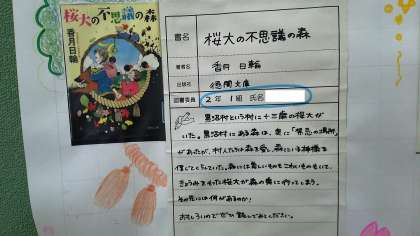 桜大の不思議の森
香月日輪
書名 桜大の不思議の森
著者名 香月 日輪
出版社 徳間文庫
図書委員 2年 1組 氏名
黒沼村という村に十三歳の桜大が
いた。黒沼村にある森は、奥に「禁忌の場所」
があったが、村人たちは森を愛し、森にいる神様を
信じてくらしていた。森には美しいものもこわいものもいて、
きょうみをもった桜大が森の奥に行ってしまう。
その先には何があるのか!
おもしろいのでぜひ読んでみてください。